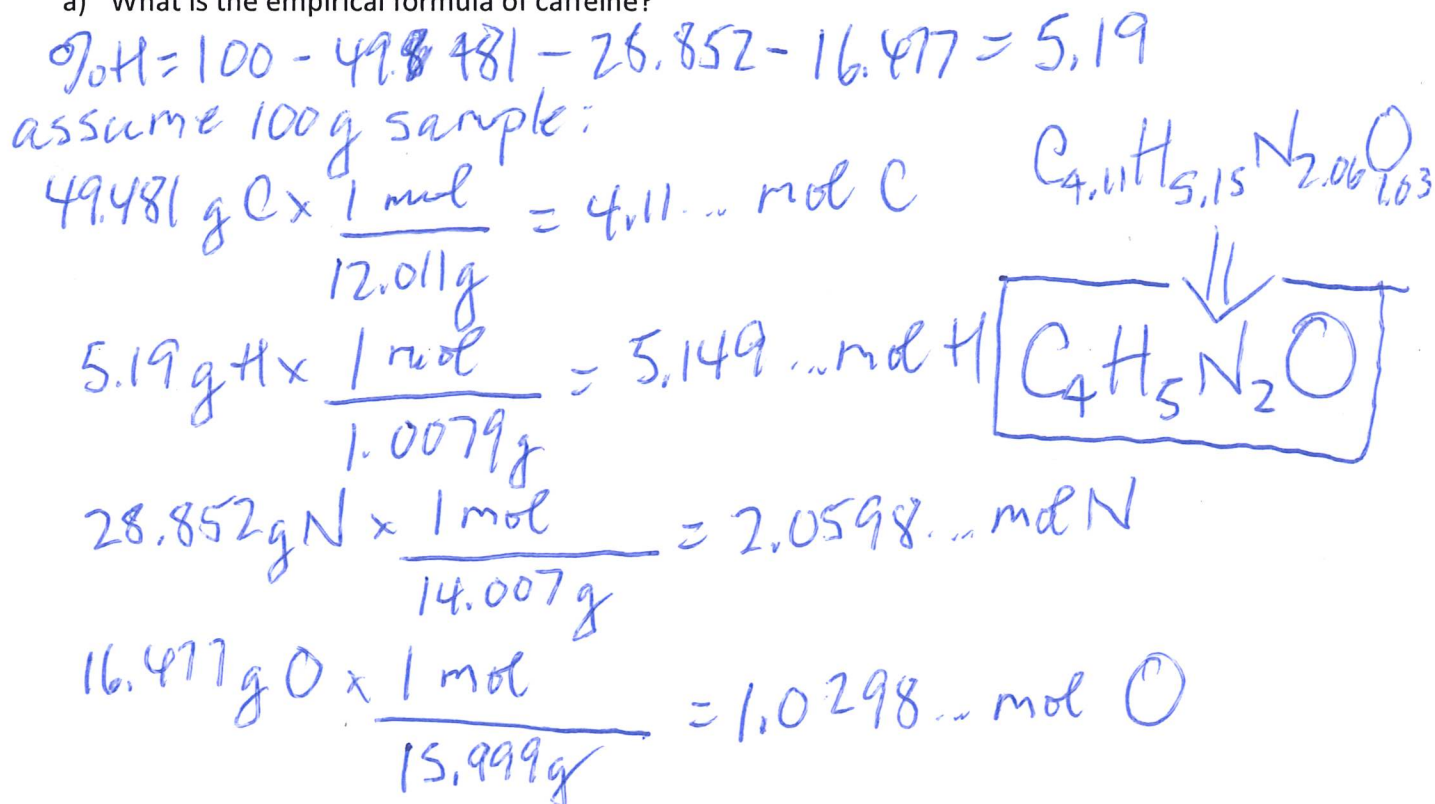 a) What is the empirical formula of caffeine?
%H = 100 - 49.481 - 28.852 - 16.477 = 5.19
assume 100g sample:
49.481 g C x 1 mol / 12.011g = 4.11... mol C
C4.11H5.15N2.06O1.03
⇓
5.19 g H x 1 mol / 1.0079g = 5.149...mol H
C4H5N2O
28.852g N x 1 mol / 14.007g = 2.0598... mol N
16.477g O x 1 mol / 15.999g = 1.0298... mol O